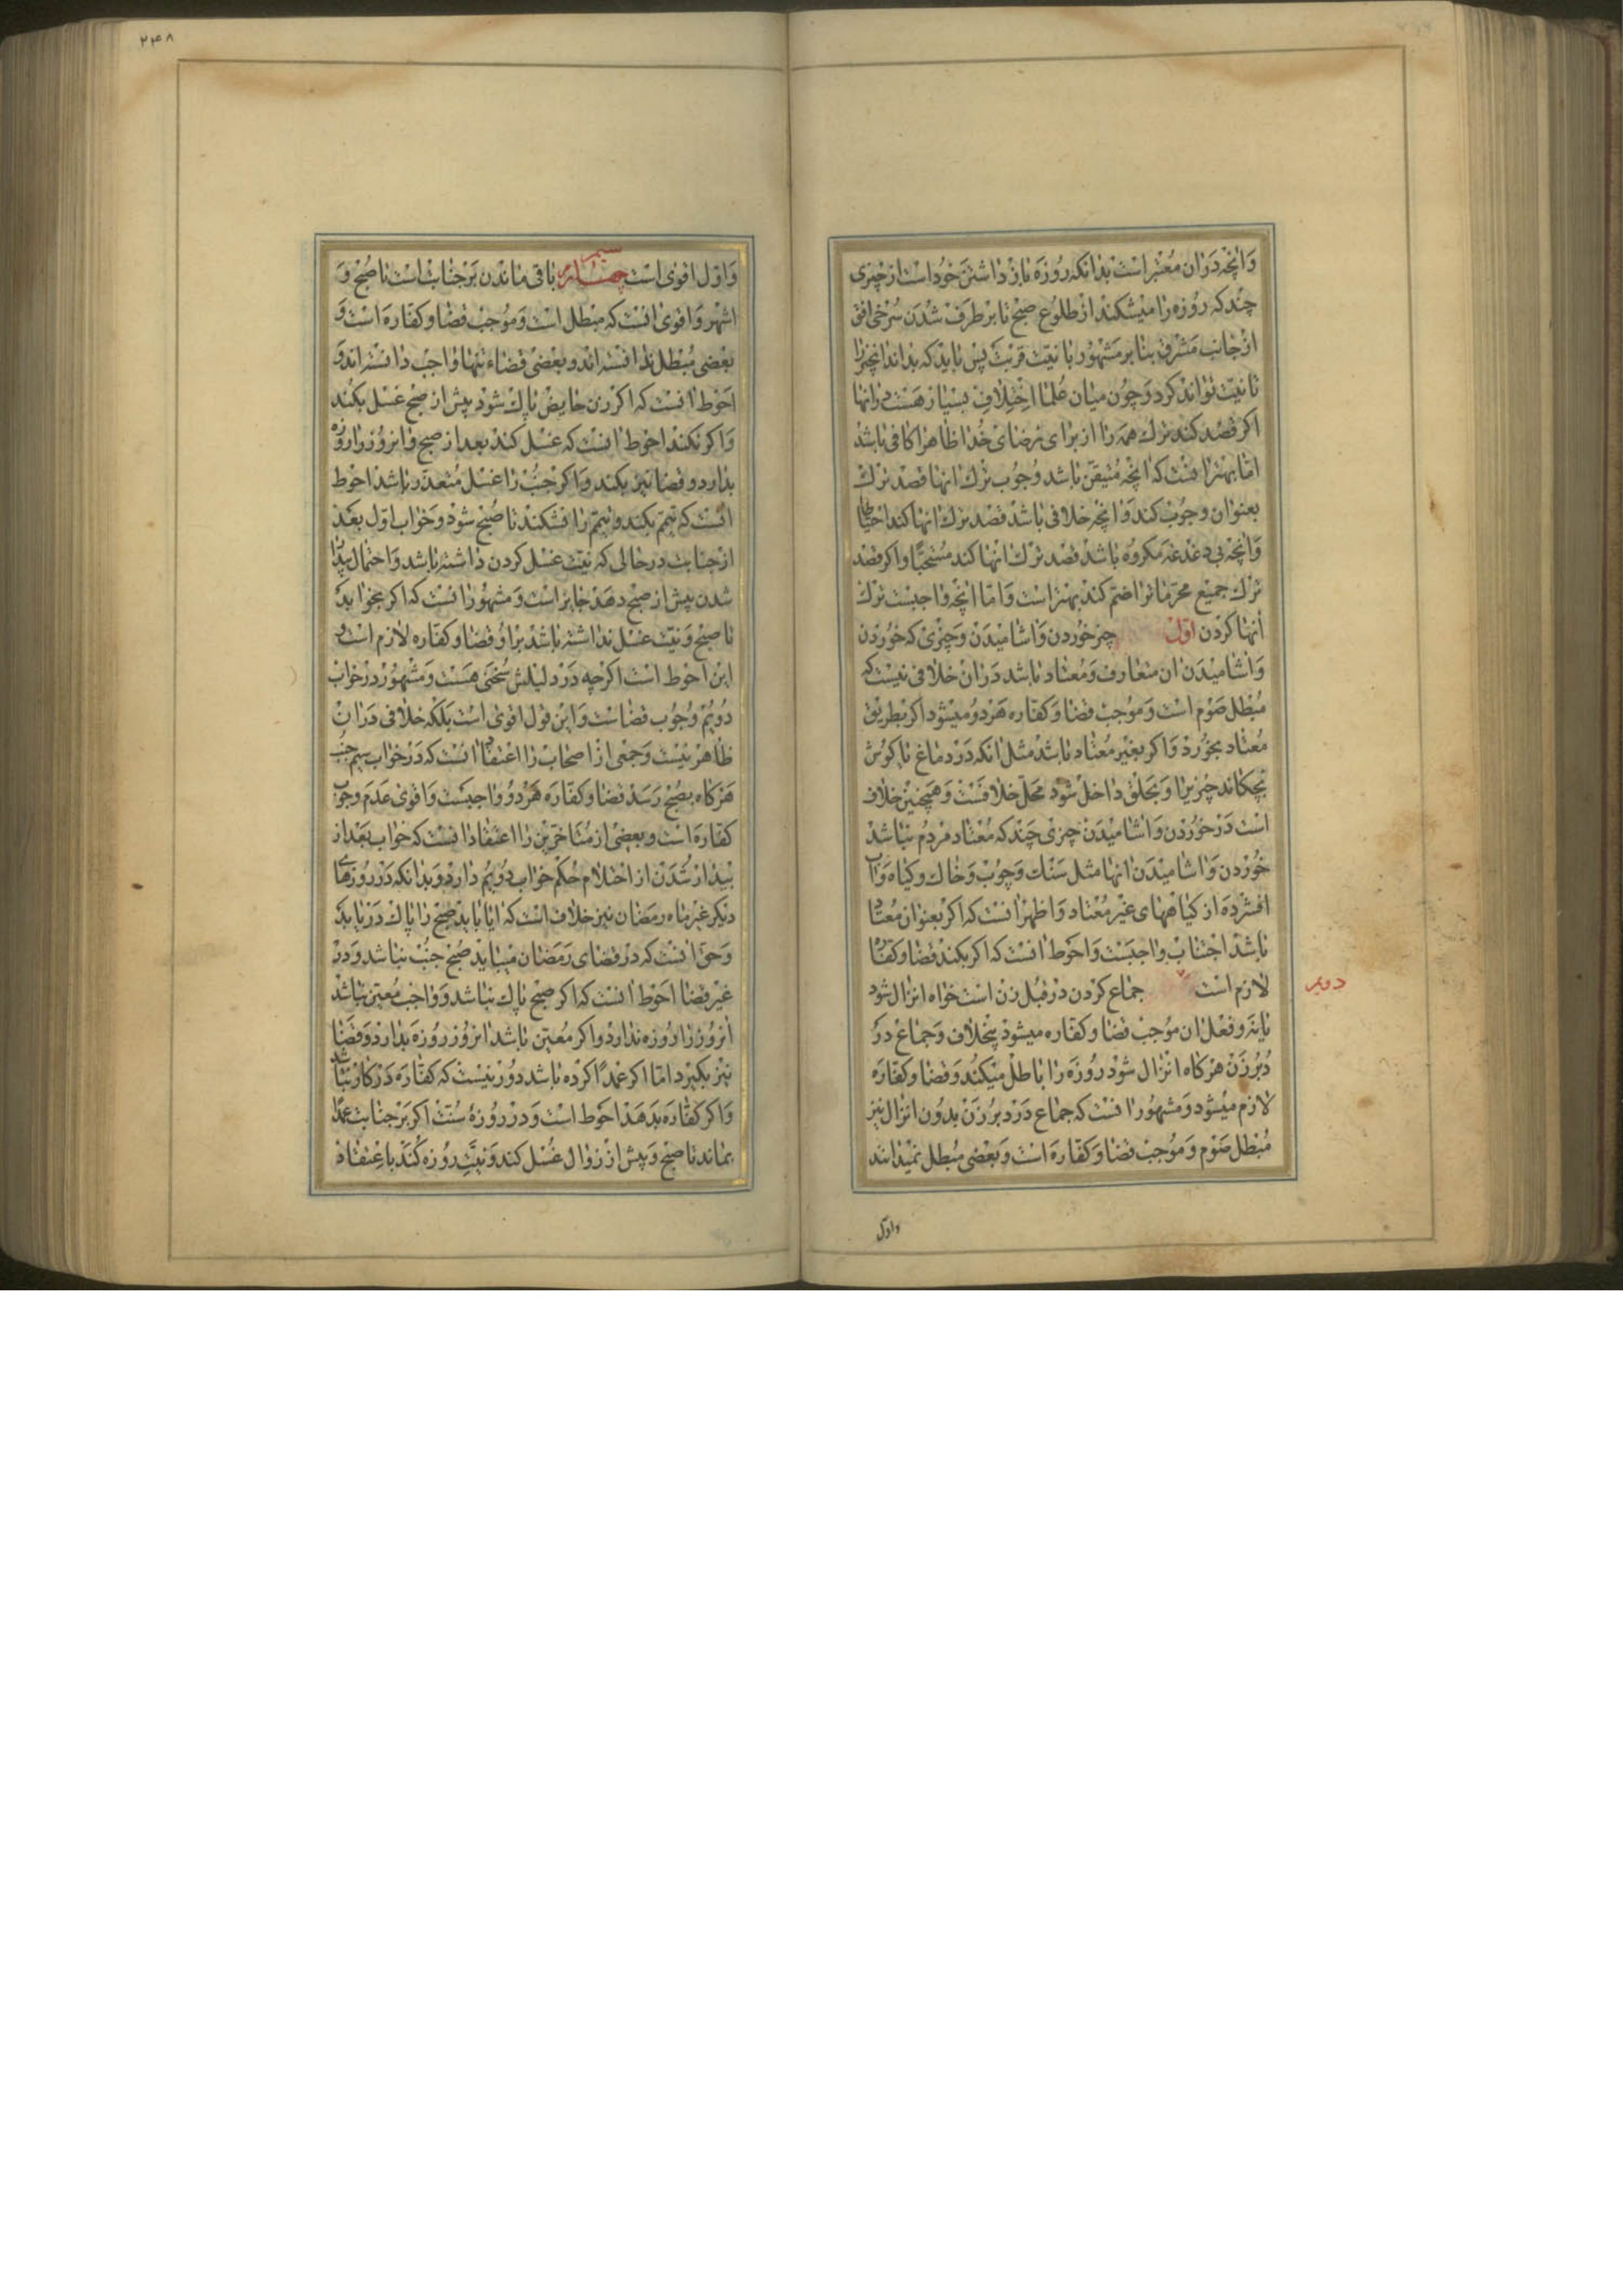 وانچه دران معتبر است بدانکه روزه باز داشتن خود است از چیزی
چند که روزه را میشکند از طلوع صبح تا بر طرف شدن سرخی افق
از جانب مشرق بنا بر مشهور با نیت قربت پس باید که بداند انچیز را
تا نیت تواند کرد و چون میان علما اختلاف بسیار هست در انها
اکر قصد کند ترک همه را از برای رضای خدا ظاهرا کافی باشد
اما بهتر انست که انچه متیقن باشد وجوب ترک انها قصد ترک
بعنوان وجوب کند و انچه خلافی باشد قصد ترک انها کند احتیاطا
وانچه بی دغدغه مکروه باشد قصد ترک انها کند مستحبا و اکر قصد
ترک جمیع محرمات را ضم کند بهتر است و اما انچه واجبست ترک
انها کردن اول چیز خوردن و اشامیدن و چیزی که خوردن
و اشامیدن ان متعارف و معتاد باشد دران خلافی نیست که
مبطل صوم است و موجب قضا و کفاره هر دو میشود اکر بطریق
معتاد بخورد و اکر بغیر معتاد باشد مثل انکه در دماغ یا کوش
بچکاند چیزیرا و بحلق داخل شود محل خلافست و همچنین خلاف
است در خوردن و اشامیدن چیزی چند که معتاد مردم نباشد
خوردن و اشامیدن انها مثل سنک و چوب و خاک و کیاه و اب
افشرده از کیاههای غیر معتاد و اظهر انست که اکر بعنوان معتاد
باشد اجتناب واجبست و احوط انست که اکر بکند قضا و کفاره
لازم است جماع کردن در قبل زن است خواه انزال شود
دویم
یا نه و فعل ان موجب قضا و کفاره میشود بیخلاف و جماع در
دبر زن هرکاه انزال شود روزه را باطل میکند و قضا و کفاره
لازم میشود و مشهور انست که جماع در دبر زن بدون انزال نیز
مبطل صوم و موجب قضا و کفاره است و بعضی مبطل نمیدانند
و اول
۲۴۸
و اول اقوی است سیم چهارم باقی ماندن بر جنابت است تا صبح و
اشهر و اقوی انست که مبطل است و موجب قضا و کفاره است و
بعضی مبطل ندانسته اند و بعضی قضاء تنها واجب دانسته اند و
احوط انست که اکر زن حایض پاک شود پیش از صبح غسل بکند
و اکر نکند احوط انست که غسل کند بعد از صبح و انروز را روزه
بدارد و قضا نیز بکند و اکر جنب را غسل متعذر باشد احوط
انست که تیمم بکند و تیمم را نشکند تا صبح شود و خواب اول بعد
از جنابت در حالی که نیت غسل کردن داشته باشد و احتمال بیدار
شدن پیش از صبح دهد جایز است و مشهور انست که اکر بخوابد
تا صبح و نیت غسل نداشته باشد بر او قضا و کفاره لازم است و
این احوط است اکرچه در دلیلش سخنی هست و مشهور در خواب
دویم وجوب قضاست و این قول اقوی است بلکه خلافی در ان
ظاهر نیست و جمعی از اصحاب را اعتقاد انست که در خواب سیم جنب
هرکاه بصبح رسد قضا و کفاره هر دو واجبست و اقوی عدم وجوب
کفاره است و بعضی از متاخرین را اعتقاد انست که خواب بعد از
بیدار شدن از احتلام حکم خواب دویم دارد و بدانکه در روزهای
دیکر غیر ماه رمضان نیز خلاف است که ایا باید صبح را پاک دریابد
و حق انست که در قضای رمضان میباید صبح جنب نباشد و در
غیر قضا احوط انست که اکر صبح پاک نباشد و واجب معین نباشد
انروز را روزه ندارد و اکر معین باشد انروز روزه بدارد و قضا
نیز بکیرد اما اکر عمدا کرده باشد دور نیست که کفاره در کار نباشد
و اکر کفاره بدهد احوط است و در روزه سنت اکر بر جنابت عمدا
بماند تا صبح و پیش از زوال غسل کند و نیت روزه کند باعتقاد